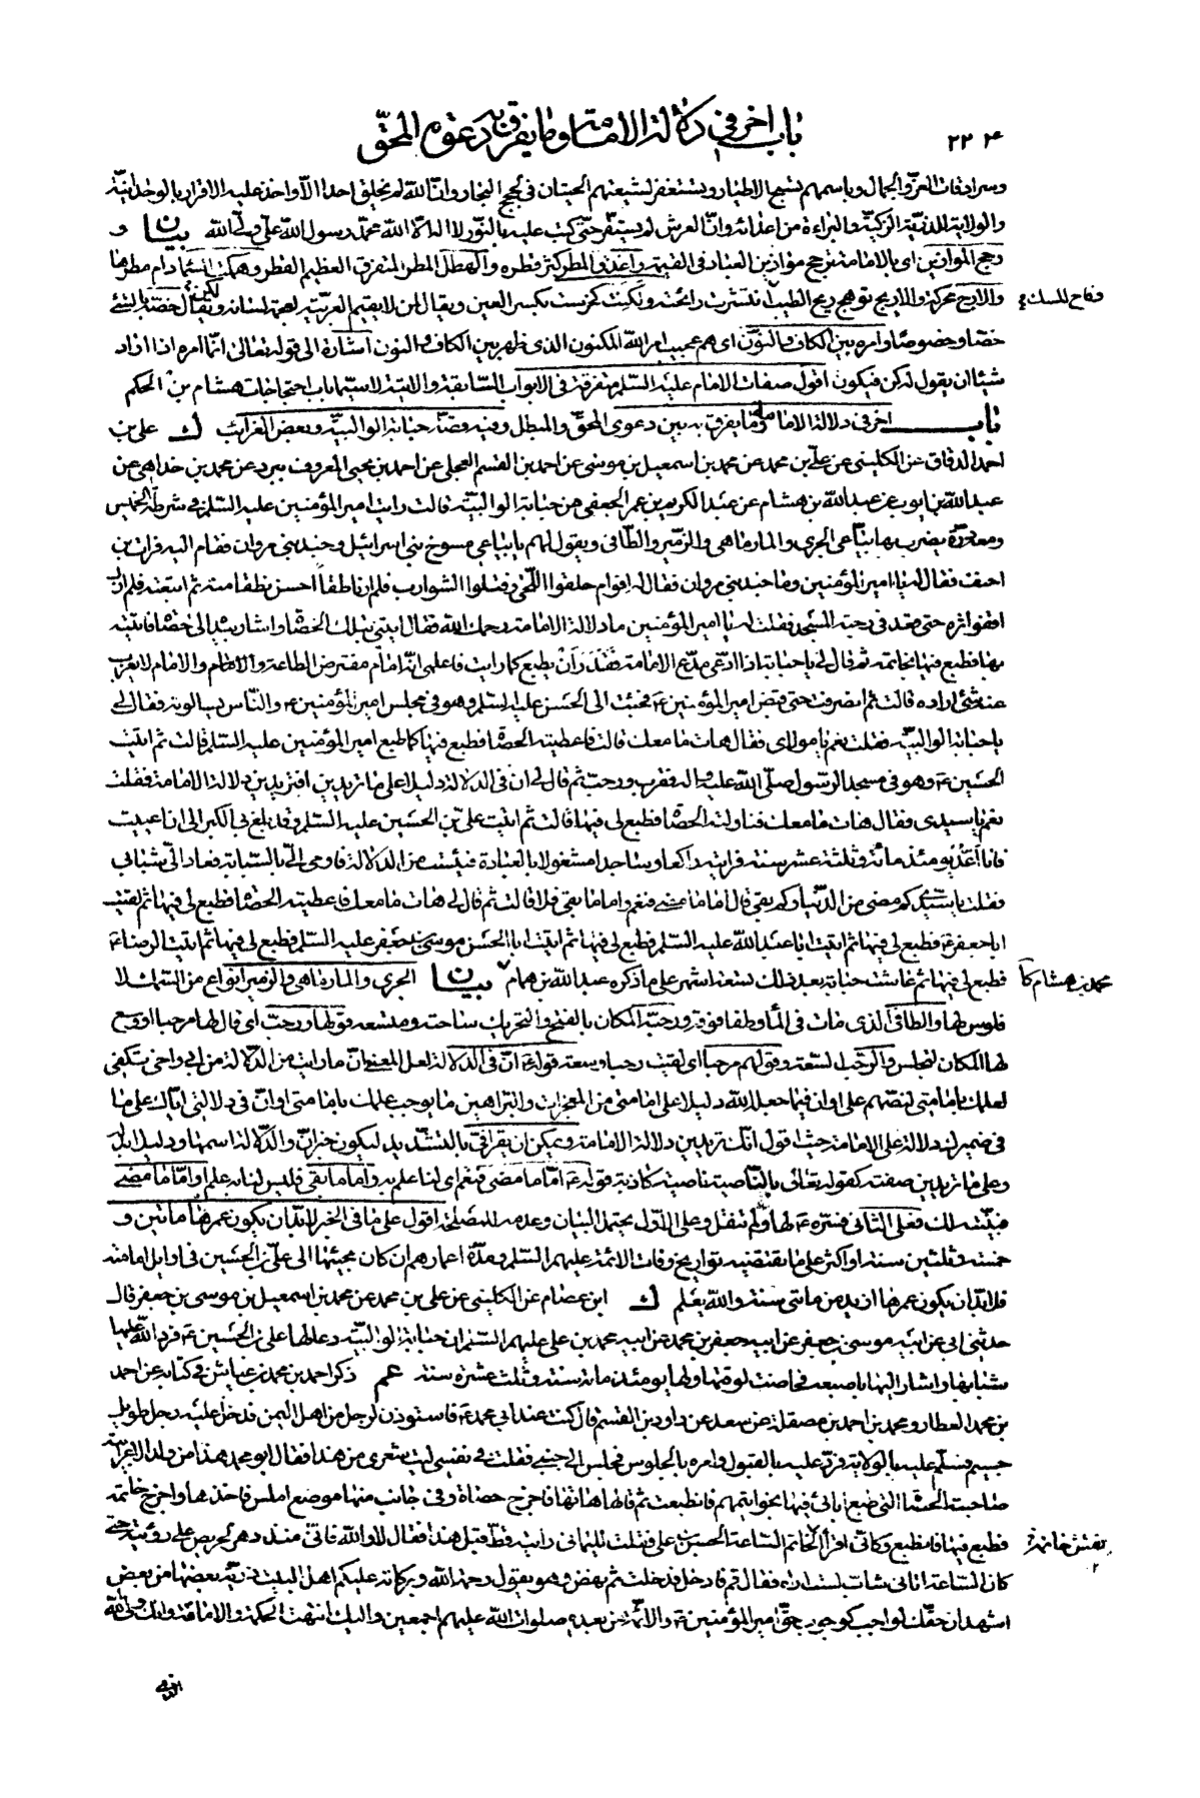 ٢٢٤
باب اخر فى دلالة الامامة وما يفرق به دعوى المحقّ
وسرادقات العزّ والجمال وباسمهم تسبح الاطيار ويستغفر لشيعتهم الحيتان فى لجج البحار وانّ الله لم يخلق احدا الّا واخذ عليه الاقرار بالوحدانيّة
والولاية للذرّيّة الزكيّة والبراءة من اعدائهم وانّ العرش لم يستقرّ حتّى كتب عليه بالنّور لا اله الّا الله محمّد رسول الله علىّ ولىّ الله بيان و
رجح الموازين اى بالامامة ترجح موازين العباد فى القيمة واغدق المطر كثر قطره والهطل المطر المتفرق العظيم القطر وهمكت السّماء دام مطرها
والارج محركة والاريج توهج ريح الطيب تنتشرت رائحته ولكنت كخرست بكسر العين ويقال لمن لا يقيم العربيّة لعجمة لسانه ويقال خصّه بالشئ
فتاح المسك
خصّا وخصوصا وامره بين الكاف والنّون اى هم عجيب امر الله المكنون الذى ظهر بين الكاف والنون اشارة الى قوله تعالى انّما امره اذا اراد
شيئا ان يقول له كن فيكون اقول صفات الامام عليه السّلام متفرقة فى الابواب السّابقة والاتية لا سيّما باب احتجاجات هشام بن الحكم
باب اخر فى دلالة الامامة وما يفرق به بين دعوى المحقّ والمبطل وفيه قصّة حبابة الوالبيّة وبعض الغرائب ك علىّ بن
احمد الدقاق عن الكلينى عن علىّ بن محمد عن محمد بن اسمعيل بن موسى عن احمد بن القسم العجلى عن احمد بن يحيى المعروف ببرد عن محمد بن خداهى عن
عبد الله بن ايوب عن عبد الله بن هشام عن عبد الكريم بن عمر الجعفى عن حبابة الوالبيّة قالت رايت امير المؤمنين عليه السّلام فى شرطة الخميس
ومعه درّة يضرب بها بيّاعى الجرى والمارماهى والزمّير والطّافى ويقول لهم يا بيّاعى مسوخ بنى اسرائيل وجند بنى مروان فقام اليه فرات بن
احنف فقال له يا امير المؤمنين وما جند بنى مروان فقال له اقوام حلقوا اللّحى وفتلوا الشوارب فلم ار ناطقا احسن نطقا منه ثم اتبعته فلم ازل
اقفو اثره حتى قعد فى رحبة المسجد فقلت له يا امير المؤمنين ما دلالة الامامة رحمك الله فقال ايتينى بتلك الحصاة واشار بيده الى حصاة فاتيته
بها فطبع فيها بخاتمه ثم قال لى يا حبابة اذا ادّعى مدّع الامامة فقدر ان يطبع كما رايت فاعلمى انّه امام مفترض الطاعة والامام لا يعزب
عنه شئ اراده قالت ثم انصرفت حتى قبض امير المؤمنين ع فجئت الى الحسن عليه السلام وهو فى مجلس امير المؤمنين ع والنّاس يسالونه فقال لى
يا حبابة الوالبيّة فقلت نعم يا مولاى فقال هات ما معك قالت فاعطيته الحصاة فطبع فيها كما طبع امير المؤمنين عليه السّلام قالت ثم اتيت
الحسين ع وهو فى مسجد الرّسول صلّى الله عليه واله فقرب ورحب ثم قال لى ان فى الدلالة دليلا على ما تريدين افتريدين دلالة الامامة فقلت
نعم يا سيدى فقال هات ما معك فناولته الحصاة فطبع لى فيها قالت ثم اتيت علىّ بن الحسين عليه السّلام وقد بلغ بى الكبر الى ان اعييت
فانا اعدّ يومئذ مائة وثلثة عشر سنة فرايته راكعا وساجدا مشغولا بالعبادة فيئست من الدلالة فاومى الىّ بالسّبابة فعاد الىّ شبابى
فقلت يا سيّدى كم مضى من الدّنيا وكم بقى قال امّا ما مضى فنعم وامّا ما بقى فلا قالت ثم قال لى هات ما معك فاعطيته الحصاة فطبع لى فيها ثم لقيت
ابا جعفر ع فطبع لى فيها ثم اتيت ابا عبد الله عليه السّلام فطبع لى فيها ثم اتيت ابا الحسن موسى بن جعفر عليه السّلام فطبع لى فيها ثم اتيت الرضا ع
فطبع لى فيها ثم عاشت حبابة بعد ذلك تسعة اشهر على ما ذكره عبد الله بن همام بيان الجرى والمارماهى والزمير انواع من السّمك لا
محمد بن هشام كا
فلوس لها والطافى الذى مات فى الماء وطفا فوقه ورحبة المكان بالفتح والتحريك ساحته ومتسعه قولها ورحب اى قال لها مرحبا او وسع
لها المكان لتجلس والرّحب السّعة وقولهم مرحبا اى لقيت رحبا وسعة قوله ع انّ فى الدلالة لعل المعنى انّ ما رايت من الدّلالة من ابى واخى يكفى
لعلمك بامامتى لنصّهم علىّ او ان فيما جعله الله دليلا على امامتى من المعجزات والبراهين ما يوجب علمك بامامتى او انّ فى دلالتى ايّاك على ما
فى ضميرك دلالة على الامامة حيث اقول انّك تريدين دلالة الامامة ويمكن ان يقرا فىّ بالتشديد ليكون خبر انّ والدّلالة اسمها ودليلا بدله
وعلى ما تريدين صفته كقوله تعالى بالنّاصية ناصية كاذبة قوله ع امّا ما مضى فنعم اى لنا علم به وامّا ما بقى فليس لنا به علم او امّا ما مضى
فبيّنه لك فعلى الثانى فسّره ع لها ولم تنقل وعلى الاوّل يحتمل البيان وعدمه للمصلحة اقول على ما فى الخبر لابدّ ان يكون عمرها مائتين و
خمسة وثلثين سنة او اكثر على ما يقتضيه تواريخ وفات الائمة عليهم السّلام ومدّة اعمارهم ان كان مجيئها الى علىّ بن الحسين فى اوايل امامته
فلابدّ ان يكون عمرها ازيد من مائتى سنة والله يعلم ك ابن عصام عن الكلينى عن على بن محمد عن محمد بن اسمعيل بن موسى بن جعفر قال
حدثنى ابى عن ابيه موسى بن جعفر عن ابيه جعفر بن محمد عن ابيه محمد بن على عليهم السّلام ان حبابة الوالبيّة دعا لها علىّ بن الحسين ع فرد الله عليها
شبابها واشار اليها باصبعه فحاضت لوقتها ولها يومئذ مائة سنة وثلث عشرة سنة عم ذكر احمد بن محمد بن عياش فى كتابه عن احمد
بن محمد العطار ومحمد بن احمد بن مصقلة عن سعد عن داود بن القسم قال كنت عند ابى محمد ع فاستوذن لرجل من اهل اليمن فدخل عليه رجل طويل
جسيم فسلّم عليه بالولاية فردّ عليه بالقبول وامره بالجلوس فجلس الى جنبى فقلت فى نفسى ليت شعرى من هذا فقال ابو محمد هذا من ولد الاعرابية
صاحبة الحصاة التى طبع ابائى فيها بخواتيمهم فانطبعت ثم قال هاتها فاخرج حصاة وفى جانب منها موضع املس فاخذها واخرج خاتمه
فطبع فيها فانطبع وكانّى اقرا الخاتم السّاعة الحسن بن على فقلت لليمانى رايته قطّ قبل هذا فقال لا والله فانى منذ دهر لحريص على رؤيته حتى
نقش خاتمه
كان السّاعة اتانى شاب لست اراه فقال قم فادخل فدخلت ثم نهض وهو يقول رحمة الله وبركاته عليكم اهل البيت ذرّيّة بعضها من بعض
اشهد ان حقّك لواجب كوجوب حقّ امير المؤمنين ع والائمّة من بعده صلوات الله عليهم اجمعين واليك انتهت الحكمة والامامة وانك ولىّ الله
الذى